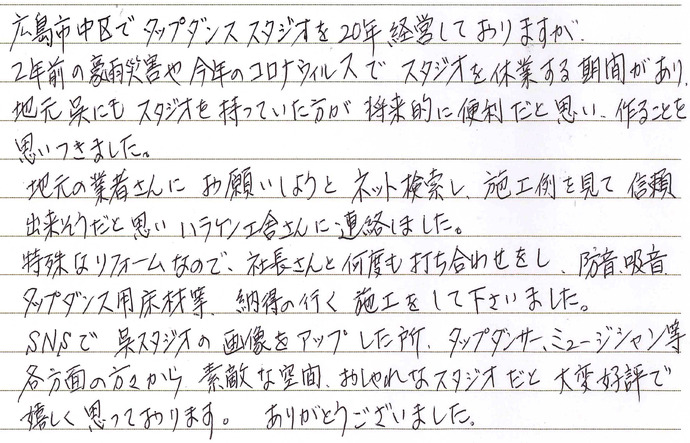 広島市中区でタップダンススタジオを20年経営しておりますが、
2年前の豪雨災害や今年のコロナウィルスでスタジオを休業する期間があり、
地元呉にもスタジオを持っていた方が将来的に便利だと思い、作ることを
思いつきました。
地元の業者さんにお願いしようとネット検索し、施工例を見て信頼
出来そうだと思いハラケン工舎さんに連絡しました。
特殊なリフォームなので、社長さんと何度も打ち合わせをし、防音、吸音、
タップダンス用床材等、納得の行く施工をして下さいました。
SNSで呉スタジオの画像をアップした所、タップダンサー、ミュージシャン等
各方面の方々から素敵な空間、おしゃれなスタジオだと大変好評で
嬉しく思っております。 ありがとうございました。